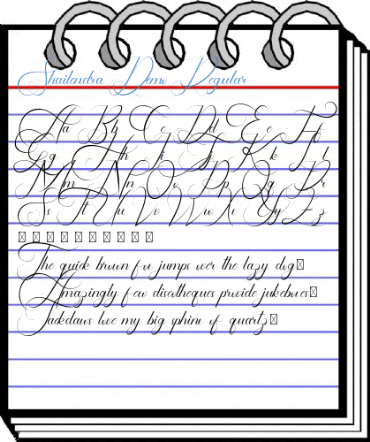 Shailendra Demo Regular
Aa Bb Cc Dd Ee Ff
Gg Hh Ii Jj Kk Ll
Mm Nn Oo Pp Qq Rr
Ss Tt Uu Vv Ww Xx Yy Zz
□ □ □ □ □ □ □ □ □ □
The quick brown fox jumps over the lazy dog□
Amazingly few discotheques provide jukeboxes□
Jackdaws love my big sphinx of quartz□